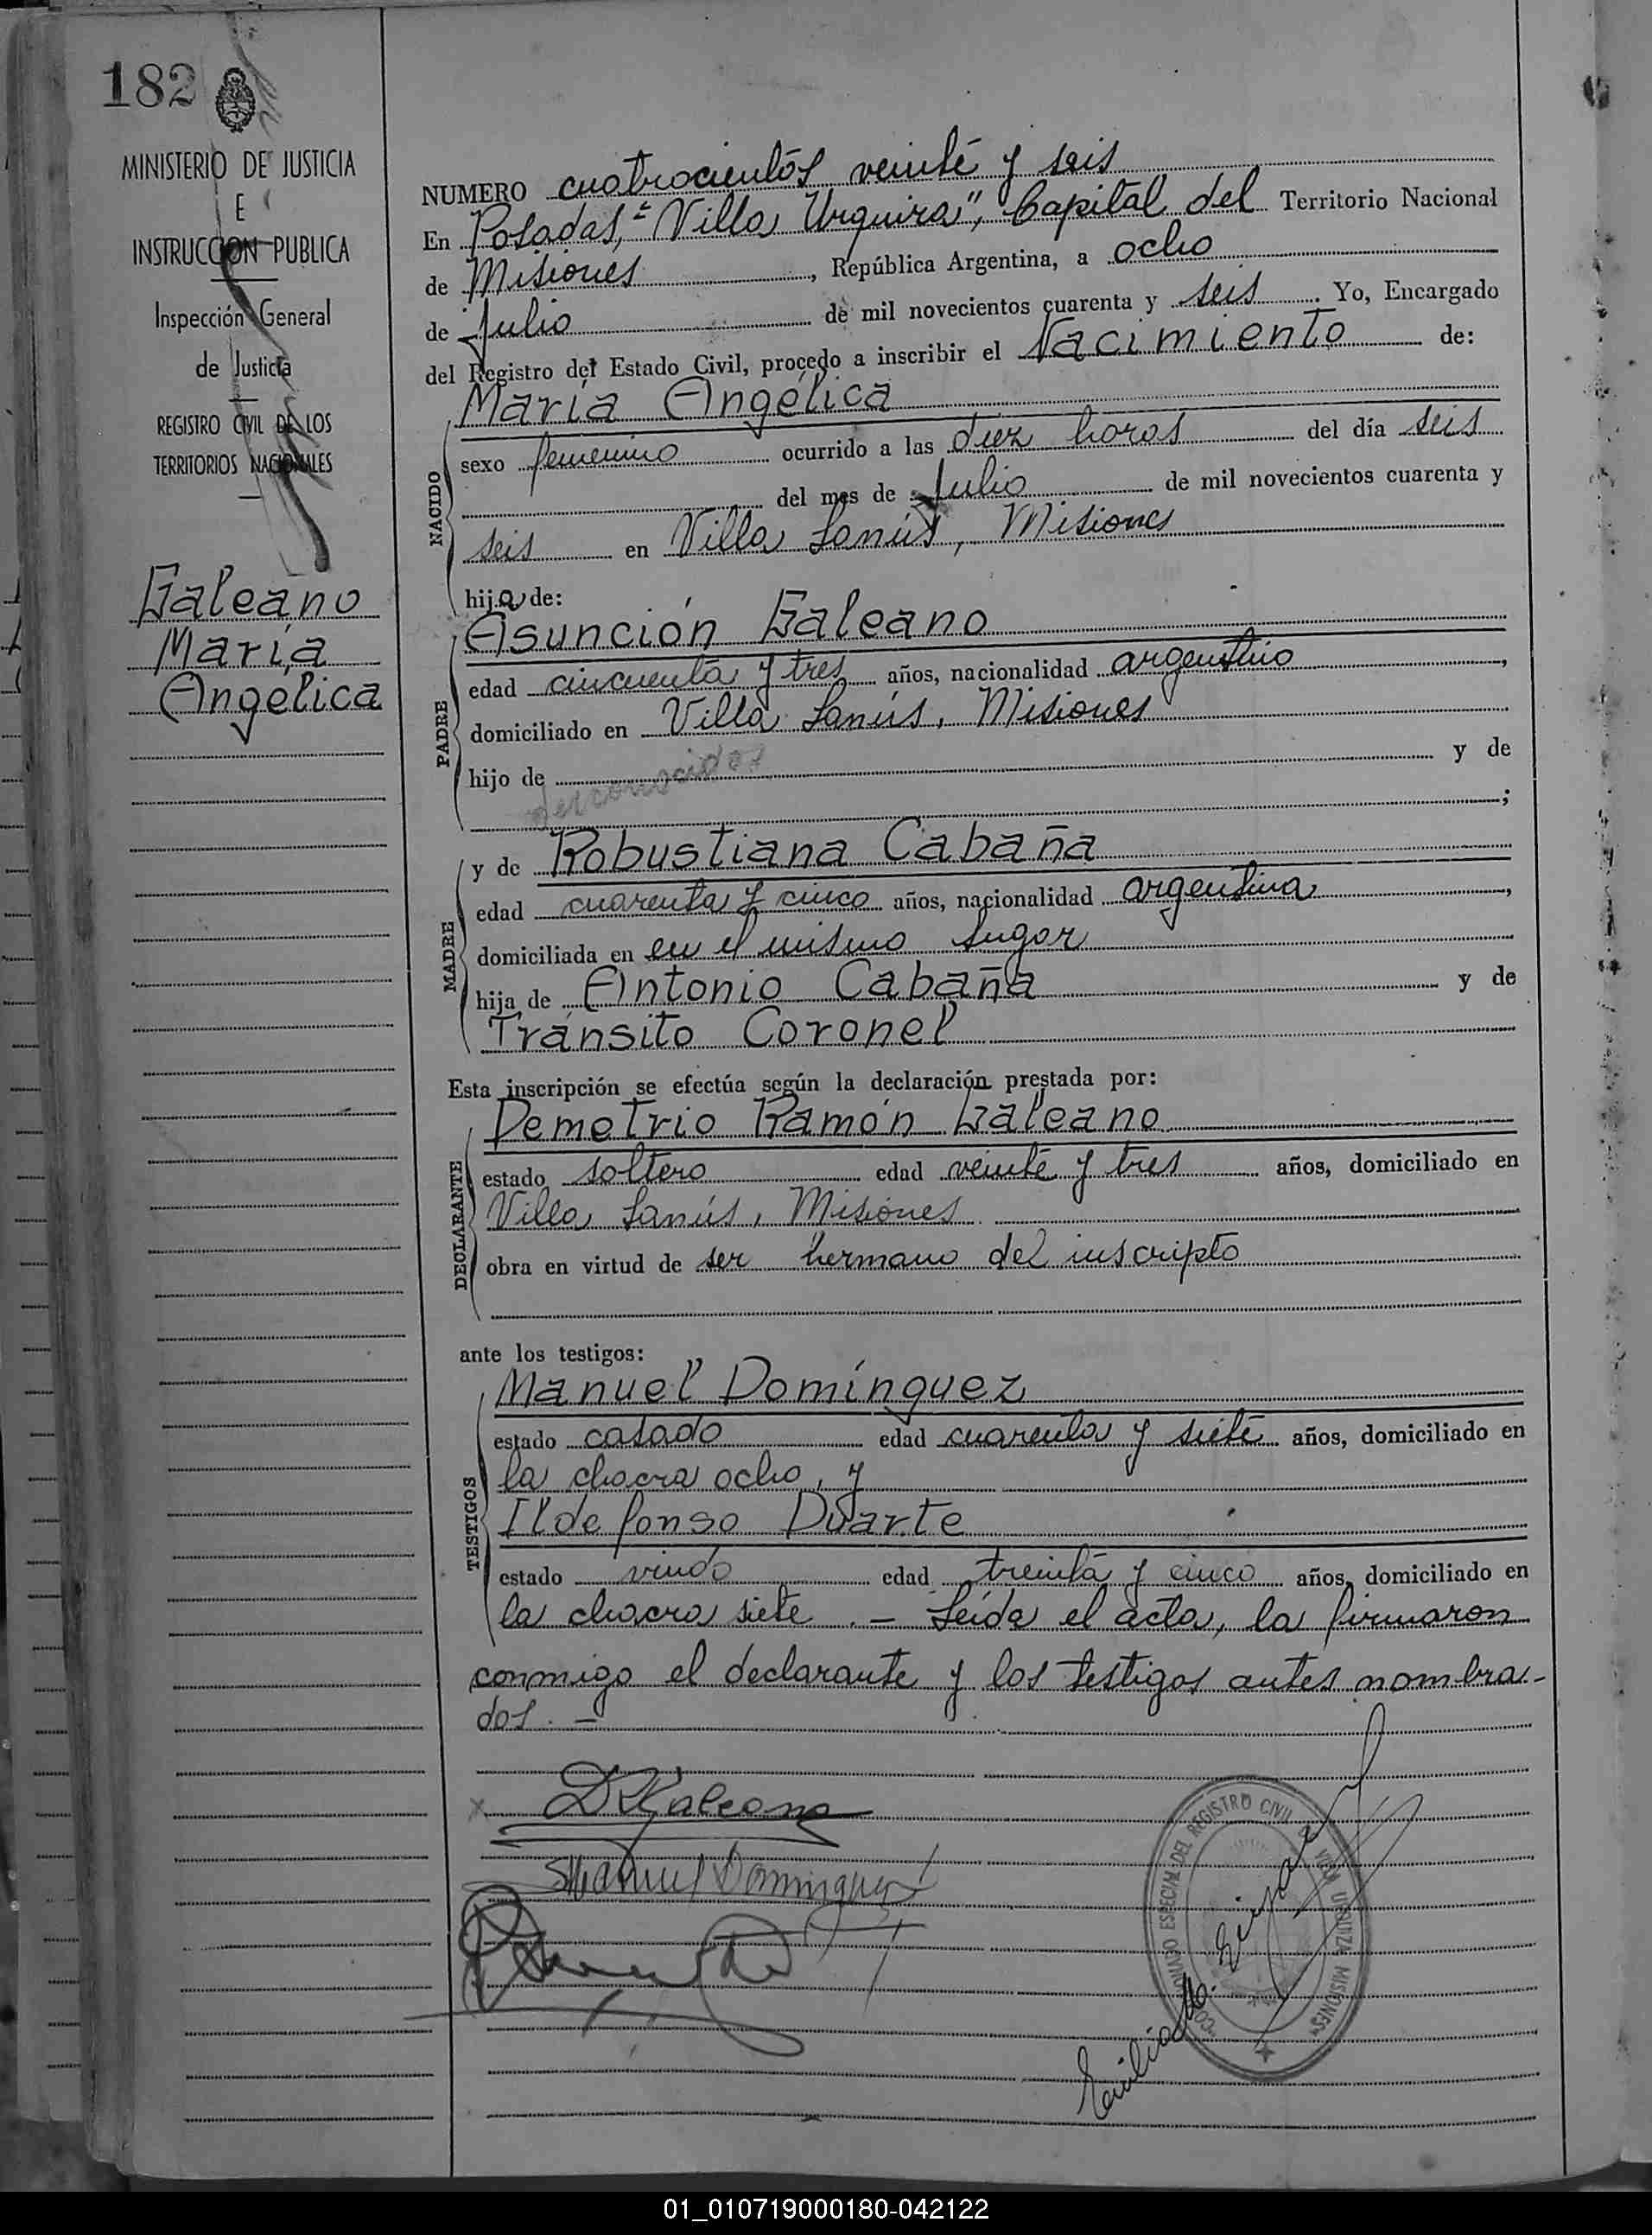 182
MINISTERIO DE JUSTICIA
E
INSTRUCCION PUBLICA
Inspección General
de Justicia
REGISTRO CIVIL DE LOS
TERRITORIOS NACIONALES
Galeano
María
Angélica
NUMERO cuatrocientos veinte y seis
En Posadas, "Villa Urquiza", Capital del Territorio Nacional
de Misiones, República Argentina, a ocho
de Julio de mil novecientos cuarenta y seis. Yo, Encargado
del Registro del Estado Civil, procedo a inscribir el Nacimiento de:
NACIDO
María Angélica
sexo femenino ocurrido a las diez horas del día seis
del mes de Julio de mil novecientos cuarenta y
seis en Villa Lanús, Misiones
hija de:
PADRE
Asunción Galeano
edad cincuenta y tres años, nacionalidad argentino,
domiciliado en Villa Lanús, Misiones
hijo de desconocidos y de
;
MADRE
y de Robustiana Cabaña
edad cuarenta y cinco años, nacionalidad argentina,
domiciliada en en el mismo lugar
hija de Antonio Cabaña y de
Tránsito Coronel
Esta inscripción se efectúa según la declaración prestada por:
DECLARANTE
Demetrio Ramón Galeano
estado soltero edad veinte y tres años, domiciliado en
Villa Lanús, Misiones.
obra en virtud de ser hermano del inscripto
ante los testigos:
TESTIGOS
Manuel Domínguez
estado casado edad cuarenta y siete años, domiciliado en
la chacra ocho, y
Ildefonso Duarte
estado viudo edad treinta y cinco años, domiciliado en
la chacra siete. - Leída el acta, la firmaron
conmigo el declarante y los testigos antes nombra-
dos. -
x DRGaleano
Manuel Dominguez
REGISTRO CIVIL
ESPECIAL DEL
VILLA URQUIZA MISIONES
Emilio
01_010719000180-042122